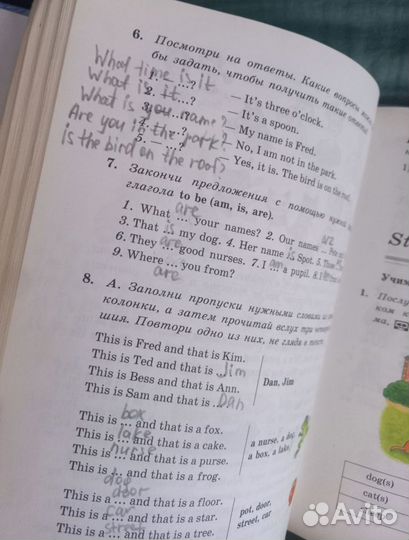 6. Посмотри на ответы. Какие вопросы
бы задать, чтобы получить такие ответы?
What time is it
1. ...? — It's three o'clock.
What is it
2. ...? — It's a spoon.
What is you name?
3. ...? — My name is Fred.
Are you in the park?
4. ...? — No, I am not in the park.
is the bird on the roof?
5. ...? — Yes, it is. The bird is on the
7. Закончи предложения с помощью
глагола to be (am, is, are).
are are
1. What ... your names? 2. Our names ...
is is
3. That ... my dog. 4. Her name ... Spot. 5.
are am
6. They ... good nurses. 7. I ... a pupil. 8.
9. Where ... you from?
are
8. А. Заполни пропуски нужными словами из
колонки, а затем прочитай вслух три
шия. Повтори одно из них, не глядя в текст.
This is Fred and that is Kim.
This is Ted and that is ... Jim
This is Bess and that is Ann.
This is Sam and that is ... Dan
Dan, Jim
box
This is ... and that is a fox.
lake
This is ... and that is a cake.
nurse
This is ... and that is a purse.
This is ... and that is a frog.
dog
a nurse, a dog,
a box, a lake
door
This is a ... and that is a floor.
car
This is a ... and that is a star.
street
This is a ... and that is a tree.
pot, door,
street, car
St
Учим
1. Послу
ком к
ма,
dog(s)
cat(s)
Avito